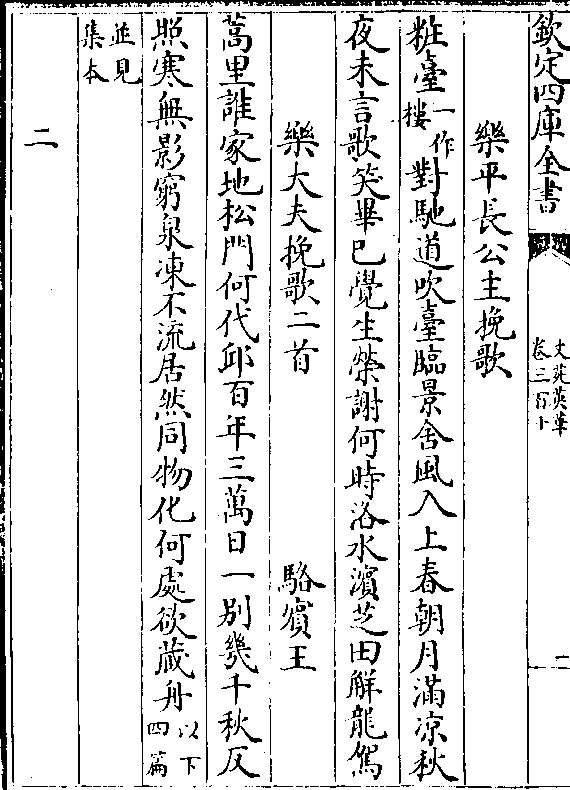 欽定四庫全書
文苑英華
卷三百十
二
樂平長公主挽歌
粧臺一作樓對馳道吹臺臨景舍風入上春朝月滿涼秋
夜未言歌笑畢已覺生榮謝何時洛水濱芝田解龍駕
樂大夫挽歌二首 駱賓王
蒿里誰家地松門何代邱百年三萬日一別幾千秋仄
照寒無影窮泉凍不流居然同物化何處欲藏舟以下四篇
並見集本
二